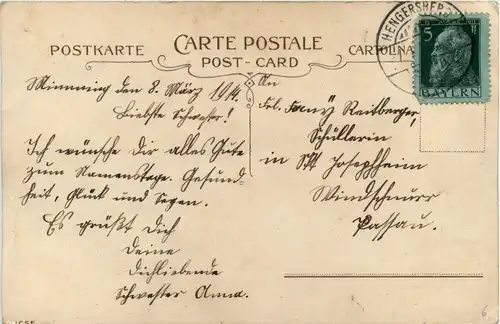 CARTE POSTALE
POSTKARTE
POST-CARD
CARTOLINA
HENGERSBER
5
BAYERN
Mimming den 8. März 1914.
Liebste Schwester!
Ich wünsche Dir alles Gute
zum Namenstage. Gesund-
heit, Glück und Segen.
Es grüßt Dich
Deine
Dichliebende
Schwester Anna.
An
Frl. Fanny Reitberger,
Schülerin
in Skt Josephheim
Windschnurr
Passau.
6